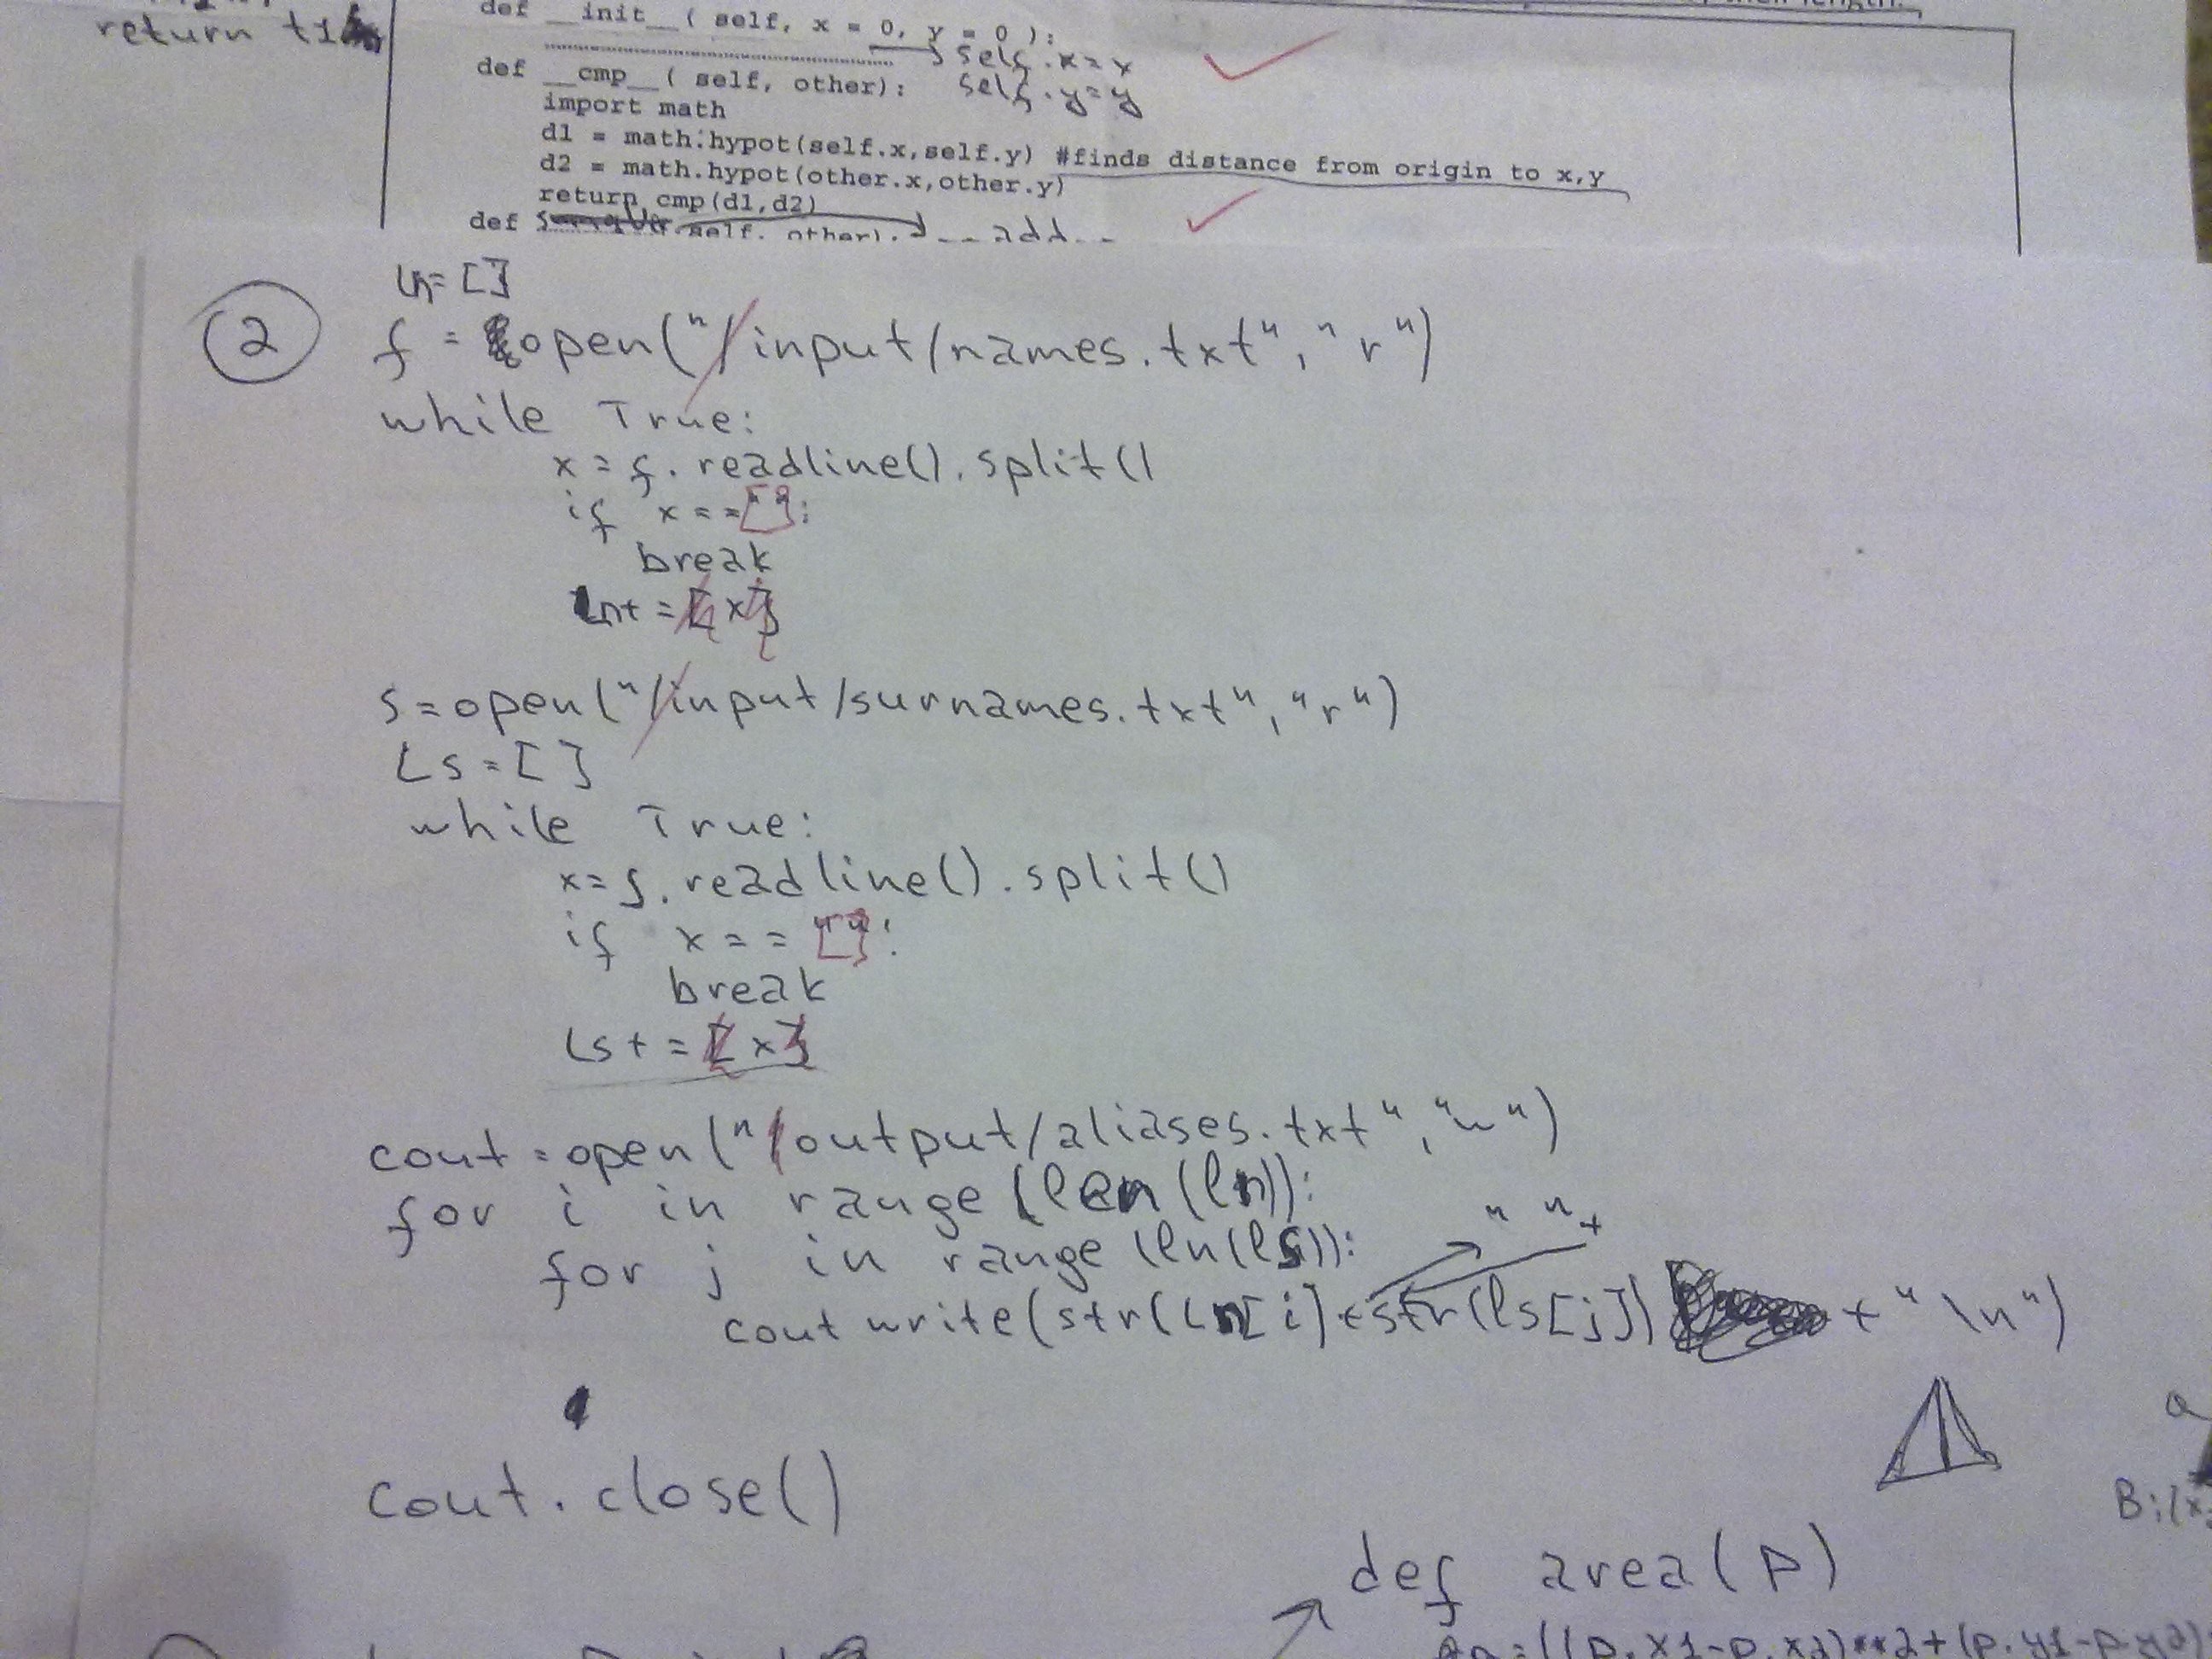 return t1
their length.
def __init__( self, x = 0, y = 0 ):
self.x=x
def __cmp__( self, other):
self.y=y
import math
d1 = math.hypot(self.x,self.y) #finds distance from origin to x,y
d2 = math.hypot(other.x,other.y)
return cmp(d1,d2)
def self, other). __add__
ln=[]
2
f = open("/input/names.txt","r")
while True:
x = f.readline().split()
if x == [""]:
break
ln+=[x]
s=open("/input/surnames.txt","r")
Ls=[]
while True:
x=s.readline().split()
if x == [""]:
break
Ls+=[x]
cout=open("/output/aliases.txt","w")
for i in range(len(ln)):
for j in range(ln(ls)):
" "+
cout write(str(Ln[i]+str(ls[j])+"\n")
cout.close()
a
B:(x
def area(p)
=((p.x1-p.x2)**2+(p.y1-p.y2)